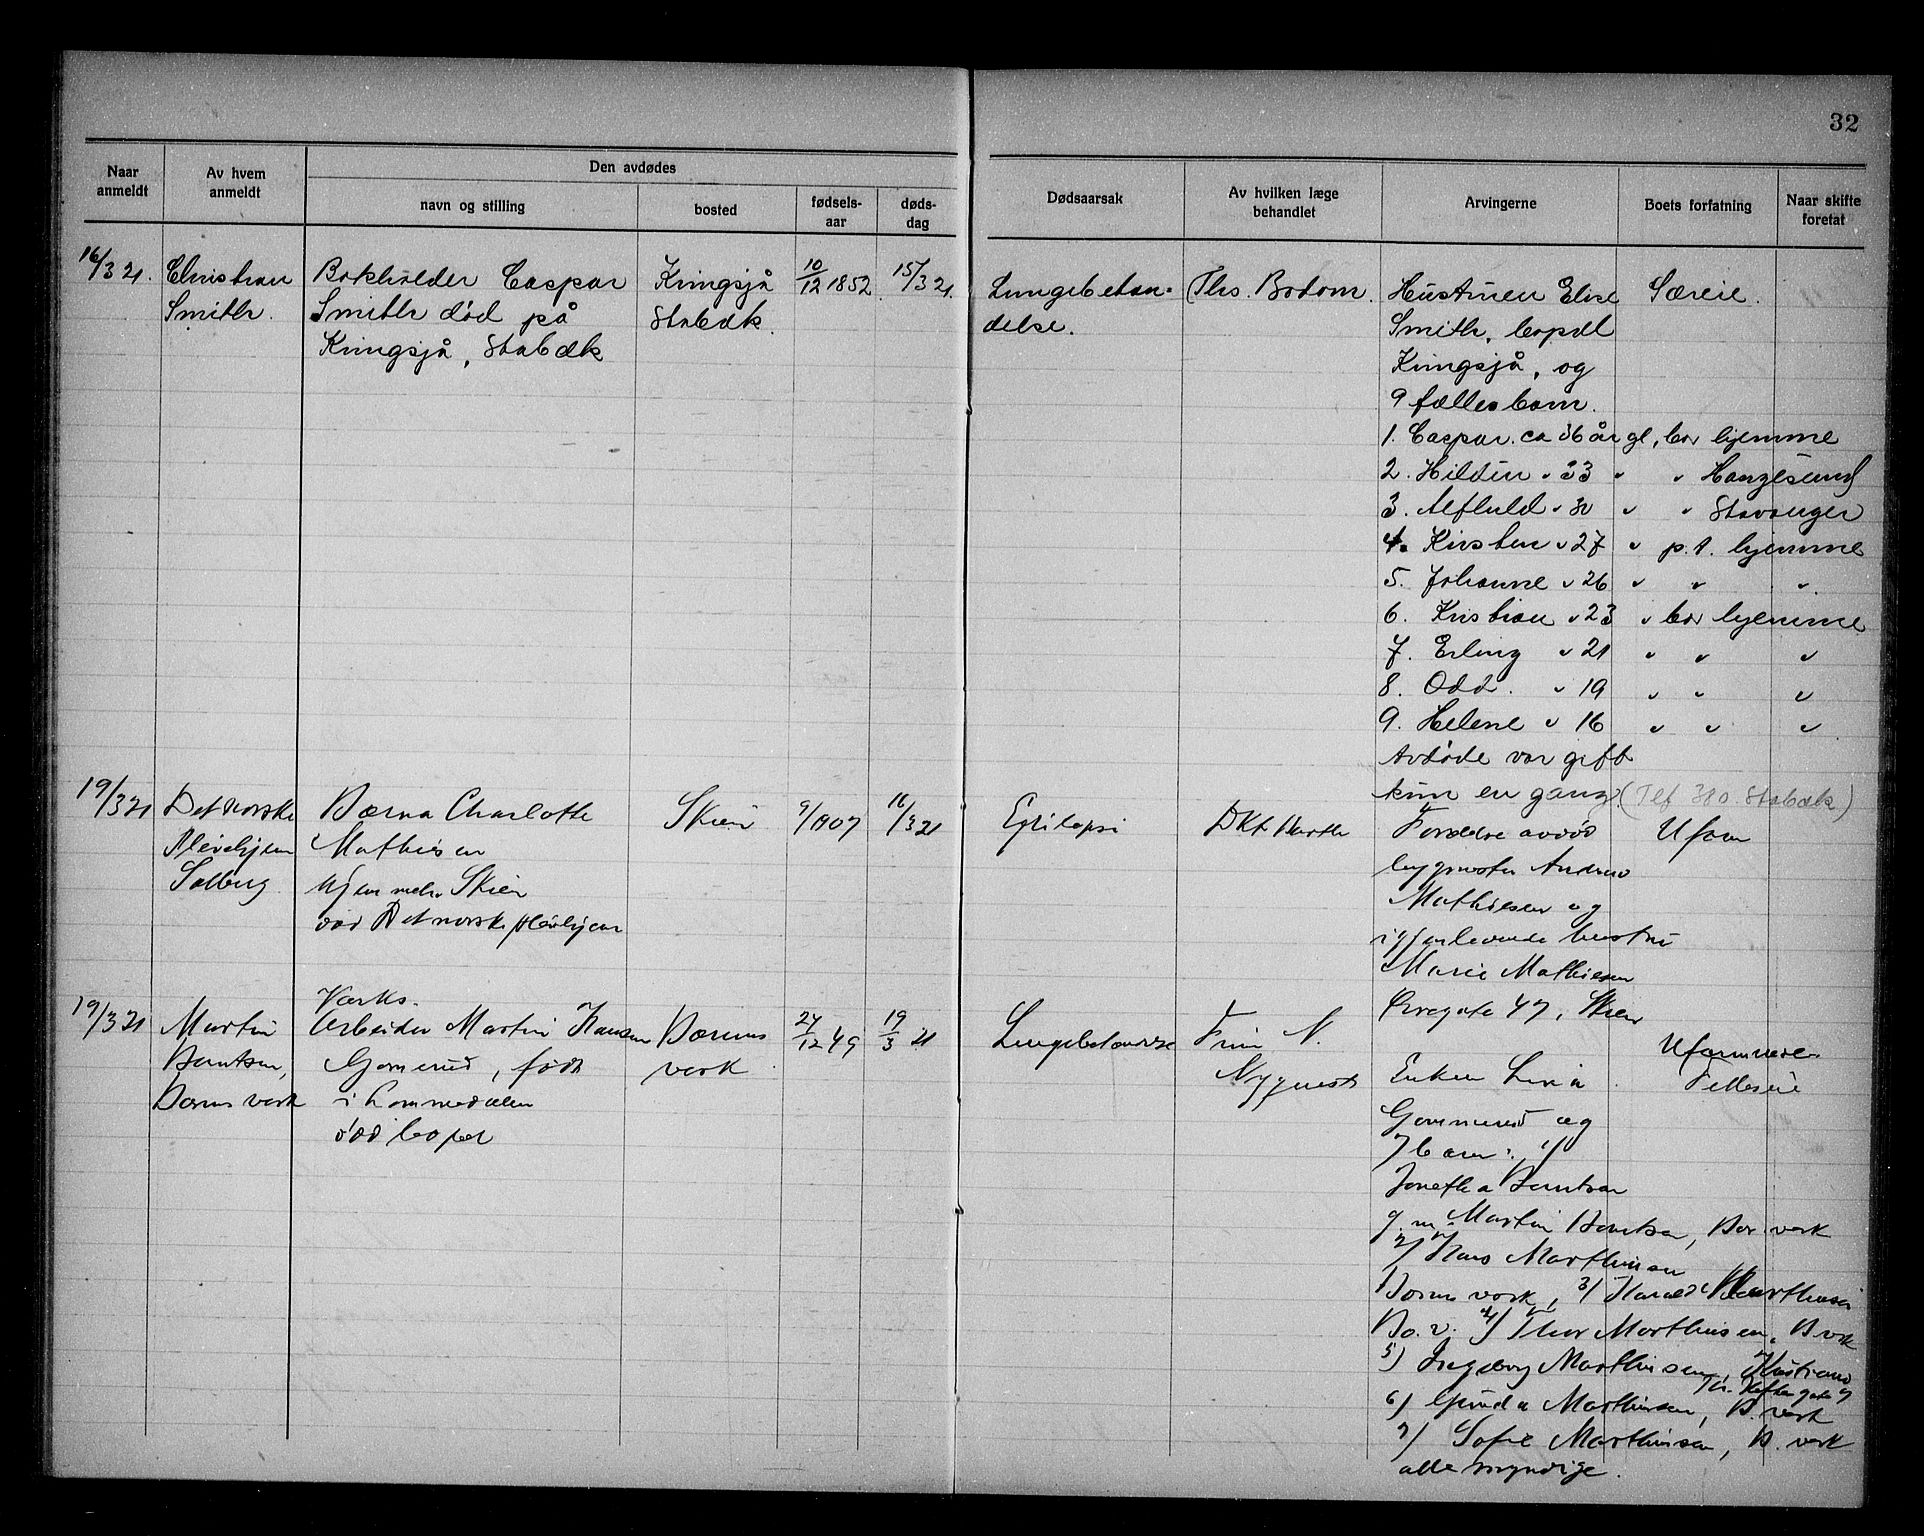 32
Naar anmeldt
Av hvem anmeldt
Den avdødes
navn og stilling
bosted
fødsels-aar
døds-dag
Dødsaarsak
Av hvilken læge behandlet
Arvingerne
Boets forfatning
Naar skifte foretat
16/3 21.
Christian
Smith.
Bokholder Caspar
Smith død på
Kringsjå, Stabæk
Kringsjå
Stabæk.
10/12 1852.
15/3 21.
Lungebetæn-
delse.
Ths. Bodom.
Hustruen Elise
Smith, bopæl
Kringsjå, og
9 fællesbarn.
Særeie.
1. Caspar. ca 36 år gl, bor hjemme
2. 33 " " Haugesund
3. Alfhild " " " Stavanger
4. Kirsten " 27 " p.t. hjemme
5. Johanne " 26 " " "
6. Kristian " 23 " bor hjemme
7. Erling " 21 " " "
8. Odd. " 19 " " "
9. Helene " 16 " " "
Avdøde var gift
kun en gang (Tlf 380. Stabæk)
19/3 21
Det norske
Pleiehjem
Solberg
Charlotte
Mathisen
Skien
død Det norske pleiehjem
Skien
9/1907
16/3 21
Epilepsi
Forældre avdød
Mathiesen og
gjenlevende hustru
Marie Mathiesen
47, Skien
19/3 21
Martin
Berntsen,
Bærums verk
Værks.
Arbeider Martin Hansen
Gommerud, født
i Lommedalen
død bopel
Bærums
verk
24/12 49
19/3 21
Lungebetændelse
N.
Nyquist
Enken
Gommerud og
7 barn: 1)
Berntsen
g.m. Martin Berntsen, Bær. verk
2) Hans Marthinsen
Bærums verk, 3) Harald Marthinsen
Bæ. v. 4) Thor Marthinsen, B. verk
5) Ingeborg Marthinsen, Kristiania
6) Marthinsen, B. verk
7) Sofie Marthinsen, B. verk
alle myndige.
Uformuende
Felleseie